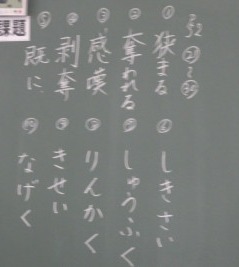 ① 狭まる
② 奪われる
③ 感嘆
④ 剥奪
⑤ 既に
⑥ しきさい
⑦ しゅうふく
⑧ りんかく
⑨ きせい
⑩ なげく